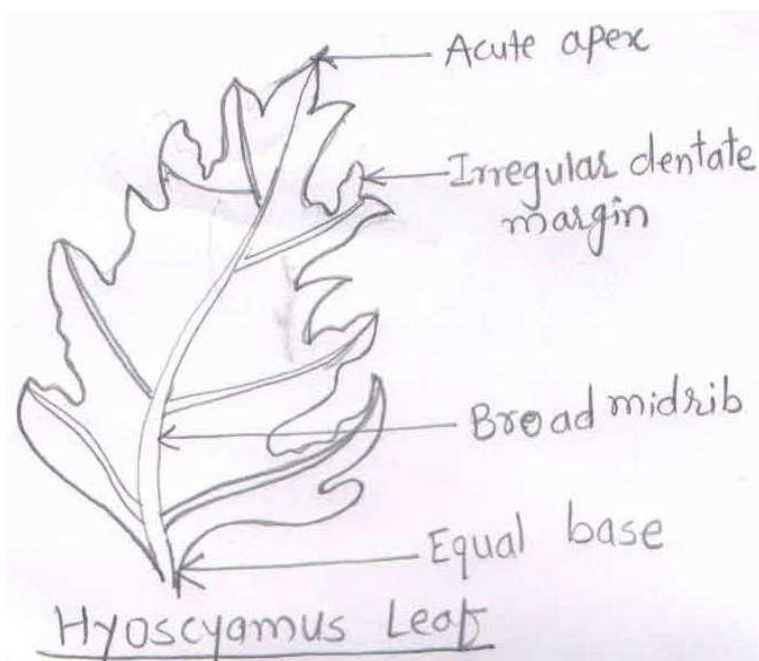 Acute apex
Irregular dentate
margin
Broad midrib
Equal base
Hyoscyamus Leaf